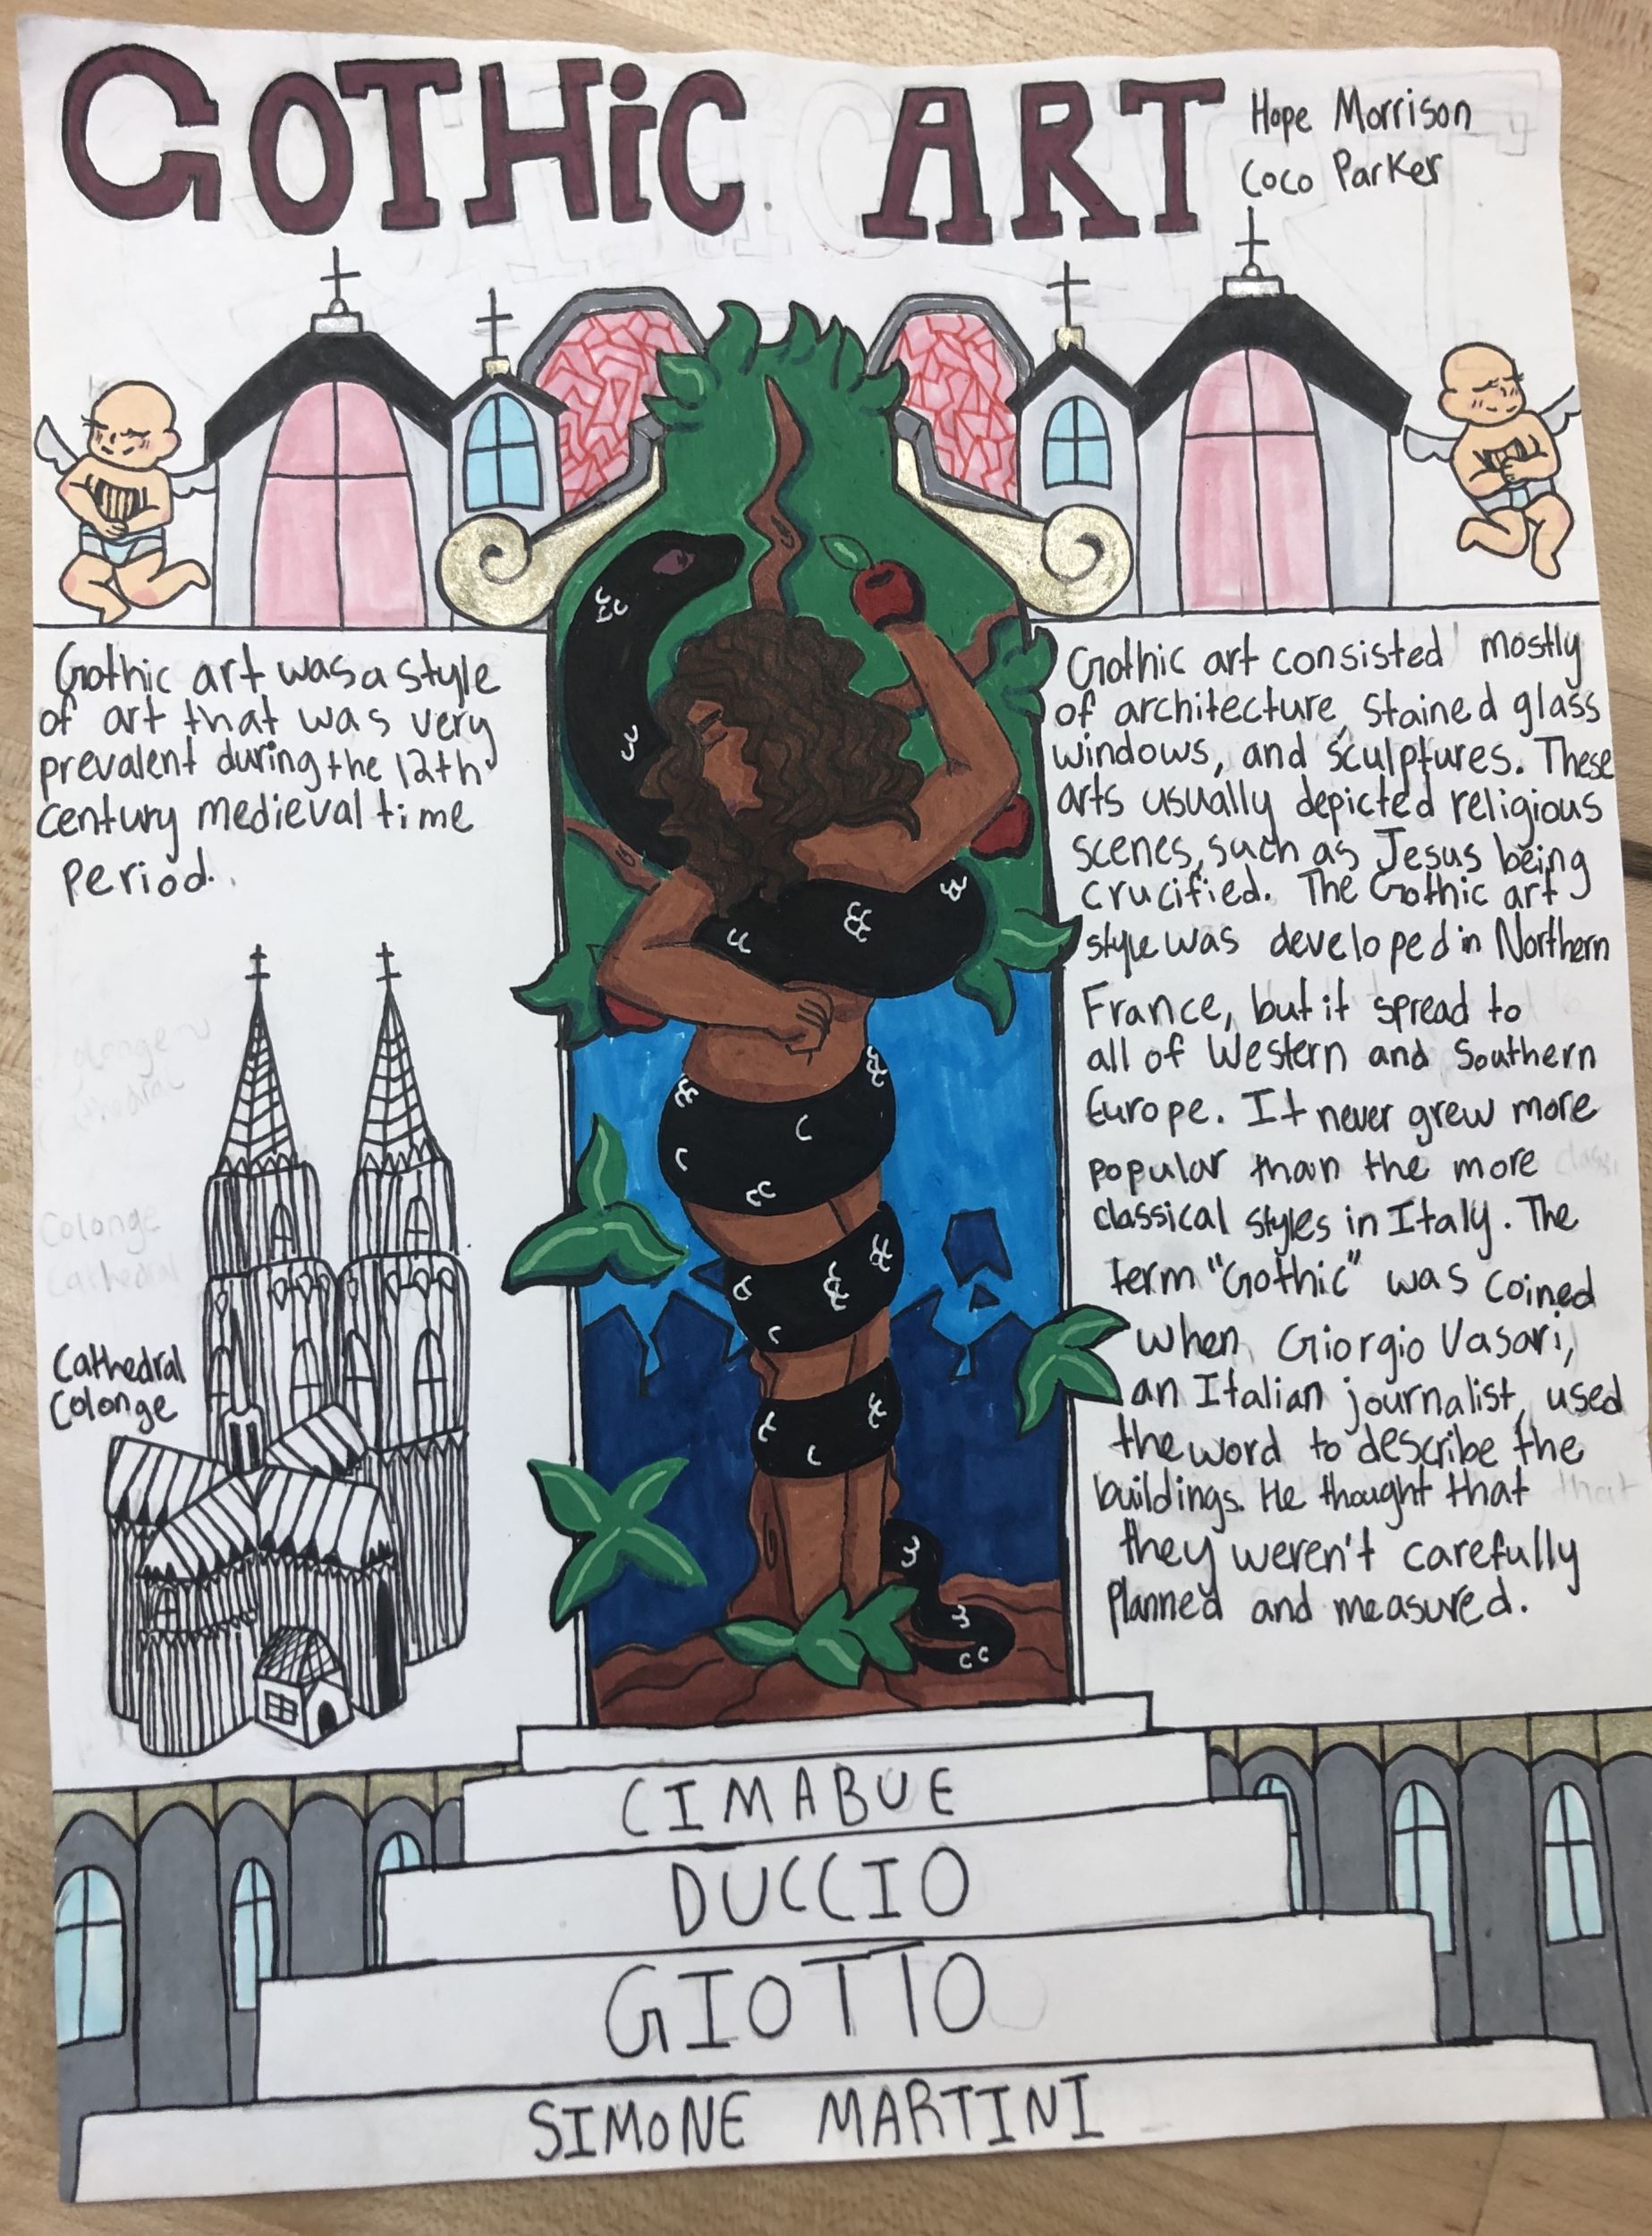 GOTHiC ART
Hope Morrison
Coco Parker
Gothic art was a style
of art that was very
prevalent during the 12th
century medieval time
period.
Cathedral
Colonge
Gothic art consisted mostly
of architecture, stained glass
windows, and sculptures. These
arts usually depicted religious
scenes, such as Jesus being
crucified. The Gothic art
style was developed in Northern
France, but it spread to
all of Western and Southern
Europe. It never grew more
popular than the more
classical styles in Italy. The
term "Gothic" was coined
when Giorgio Vasari,
an Italian journalist, used
the word to describe the
buildings. He thought that
they weren't carefully
planned and measured.
CIMABUE
DUCCIO
GIOTTO
SIMONE MARTINI